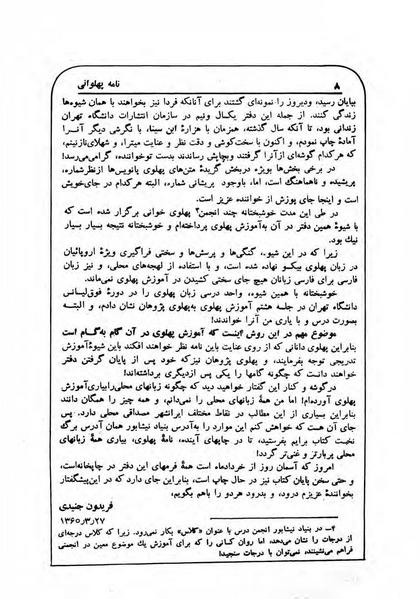 ۸ نامه پهلوانی
بپایان رسید، و دیروز را نمونه‌ای گشتند برای آنانکه فردا نیز بخواهند با همان شیوه‌ها
زندگی کنند. از جمله این دفتر یکسال ونیم در سازمان انتشارات دانشگاه تهران
زندانی بود، تا آنکه سال گذشته، همزمان با هزارهٔ ابن سینا، با نگرشی دیگر آنرا
آمادهٔ چاپ نمودم، و اکنون با سخت‌کوشی و دقت نظر و عنایت میترا، و شهلای‌نازنینم،
که هرکدام گوشه‌ای ازآنرا گرفتند وبچاپش رساندند بدست توخواننده، گرامی‌می‌رسد!
در برخی بخش‌ها بویژه دربخش گزیدهٔ متن‌های پهلوی پانویس‌ها ازنظرشماره،
پریشیده و ناهماهنگ است، اما، باوجود پریشانی شماره، البته هرکدام در جای‌خویش
است و اینجا جای پوزش از خواننده عزیز است.
در طی این مدت خوشبختانه چند انجمن۴ پهلوی خوانی برگزار شده است که
با شیوهٔ همین دفتر در آن به‌آموزش پهلوی پرداخته‌ام و خوشبختانه نتیجه بسیار بسیار
نیك بود.
زیرا که در این شیوه، گنگی‌ها و پرش‌ها و سختی فراگیری ویژهٔ اروپائیان
در زبان پهلوی بیکسو نهاده شده است، و با استفاده از لهجه‌های محلی، و نیز زبان
فارسی برای فارسی زبانان هیچ جای سختی کشیدن در آموزش پهلوی نمی‌ماند.
خوشبختانه با همین شیوه، واحد درسی زبان پهلوی را در دورهٔ فوق‌لیسانس
دانشگاه تهران در جلسه هشتم آموزش پهلوی به‌پهلوی پژوهان نشان دادم، و البته
بصورت درس و با یاری من آنرا خواندند!
موضوع مهم در این روش اینست که آموزش پهلوی در آن گام به‌گام است
بنابراین پهلوی دانانی که از روی عنایت باین نامه نظر خواهند افکند باین شیوهٔ‌آموزش
تدریجی توجه بفرمایند، و پهلوی پژوهان نیزکه خود پس از پایان گرفتن دفتر
خواهند دانست که چگونه گامها را یکی پس ازدیگری برداشته‌اند!
درگوشه و کنار این گفتار خواهید دید که چگونه زبانهای محلی‌رابیاری‌آموزش
پهلوی آورده‌ام! اما من همهٔ زبانهای محلی را نمی‌دانم، و همه چیز را همگان دانند
بنابراین بسیاری از این مطالب در نقاط مختلف ایرانشهر مصداقی محلی دارد. پس
جای آن هست که خواهش کنم این موارد را به‌آدرس بنیاد نیشابور همان آدرس برگ
نخست کتاب برایم بفرستید، تا در چاپهای آینده، نامهٔ پهلوی، بیاری همهٔ زبانهای
محلی پربارتر و غنی‌تر گردد!
امروز که آسمان روز از خردادماه است همهٔ فرمهای این دفتر در چاپخانه‌است،
و حتی سخن پایان کتاب نیز در حال چاپ است، بنابراین جای دارد که در این‌پیشگفتار
بخوانندهٔ عزیزم درود، و بدرود هردو را باهم بگویم.
فریدون جنیدی
۱۳۶۰/۳/۲۷
۴ــ در بنیاد نیشابور انجمن درس با عنوان «کلاس» بکار نمی‌رود. زیرا که کلاس درجه‌ای
از درجات را نشان می‌دهد، اما روان کسانی را که برای آموزش یك موضوع معین در انجمنی
فراهم می‌نشینند، نمی‌توان با درجات سنجید!